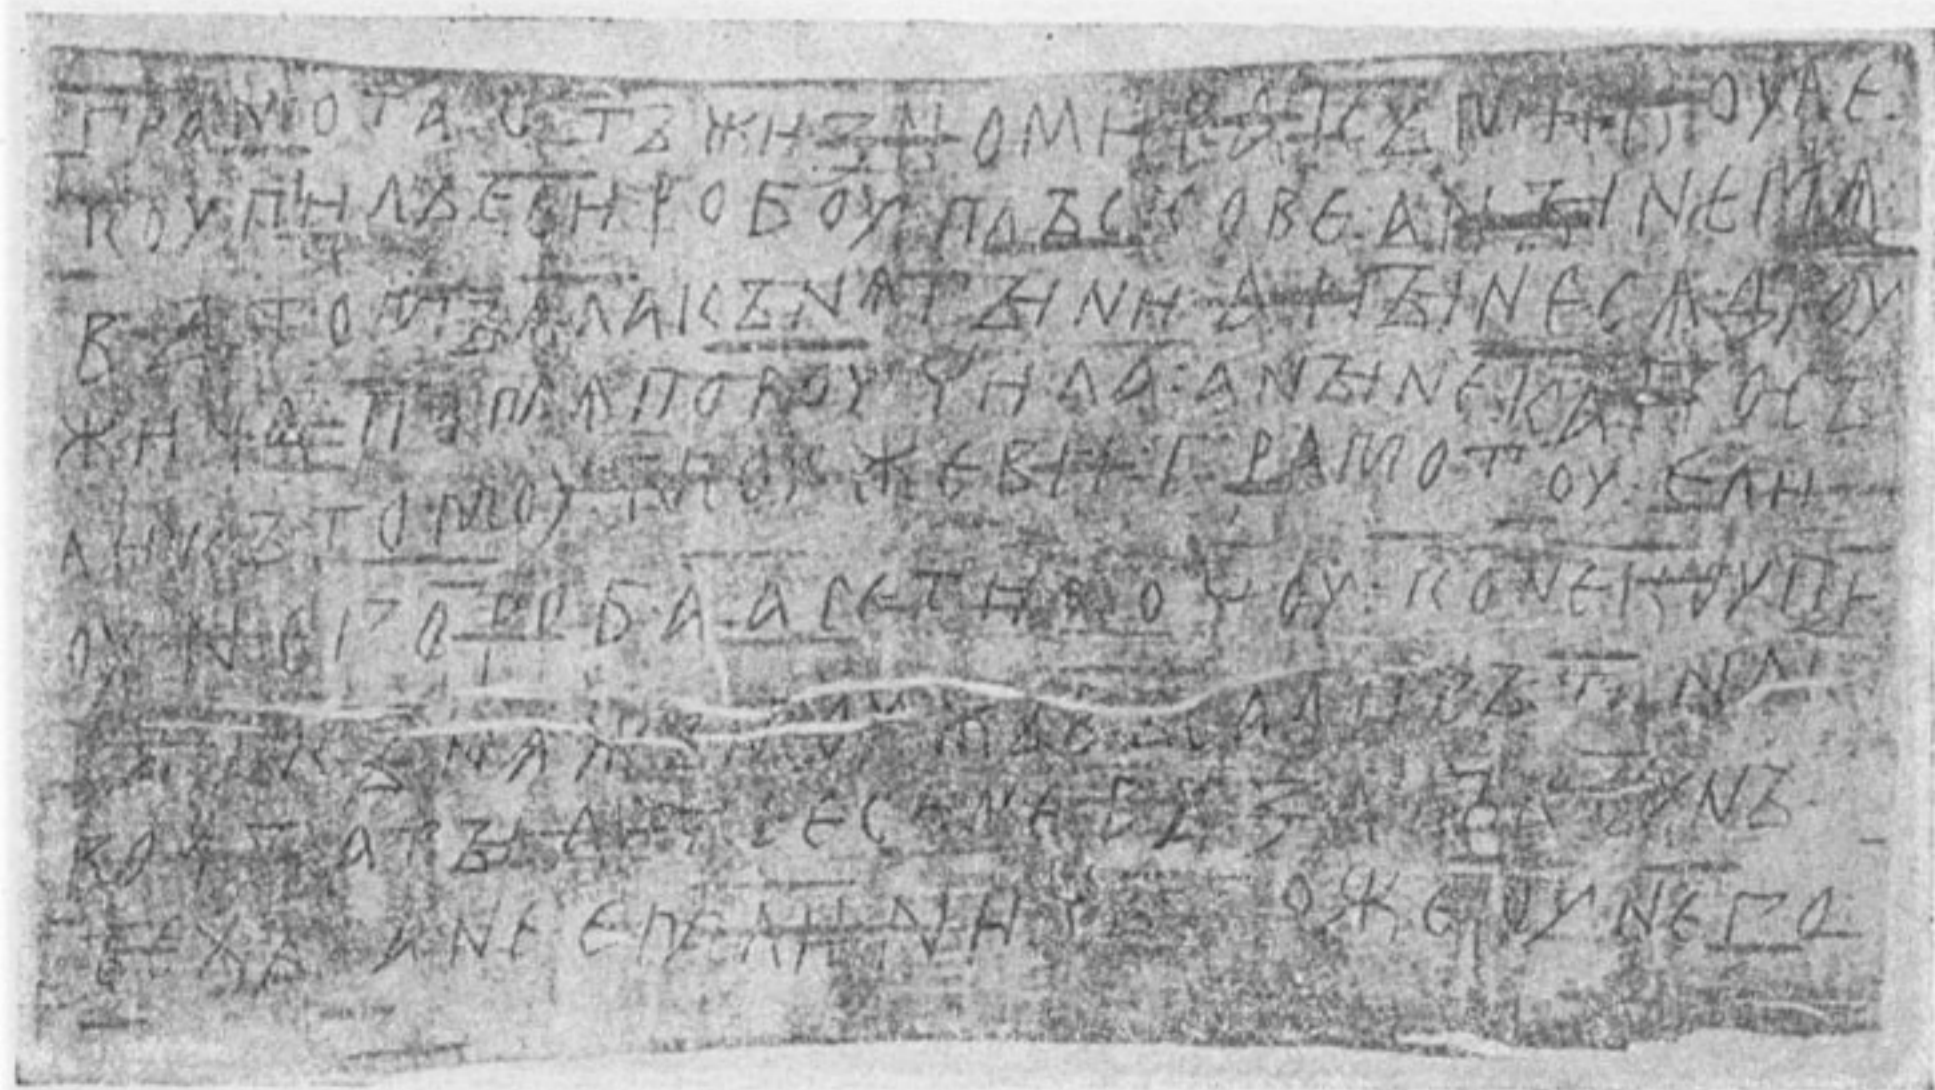 грамота : ѡтъ жизномира : къ микоуле :
коупилъ еси : робоу : плъскове : а нꙑне мѧ :
въ томъ : ѧла кънѧгꙑни : а нꙑне сѧ дроу
жина : по мѧ пороучила : а нꙑне ка : посъ
ли къ томоу : моужеви : грамотоу : ели
оу него роба : а се ти хочоу : коне коупи
въ : и кънѧжъ моужъ въсадивъ : та на съ
водꙑ : а тꙑ атче еси не възалъ коунъ :
техъ : а не емли : ничъто же оу него :